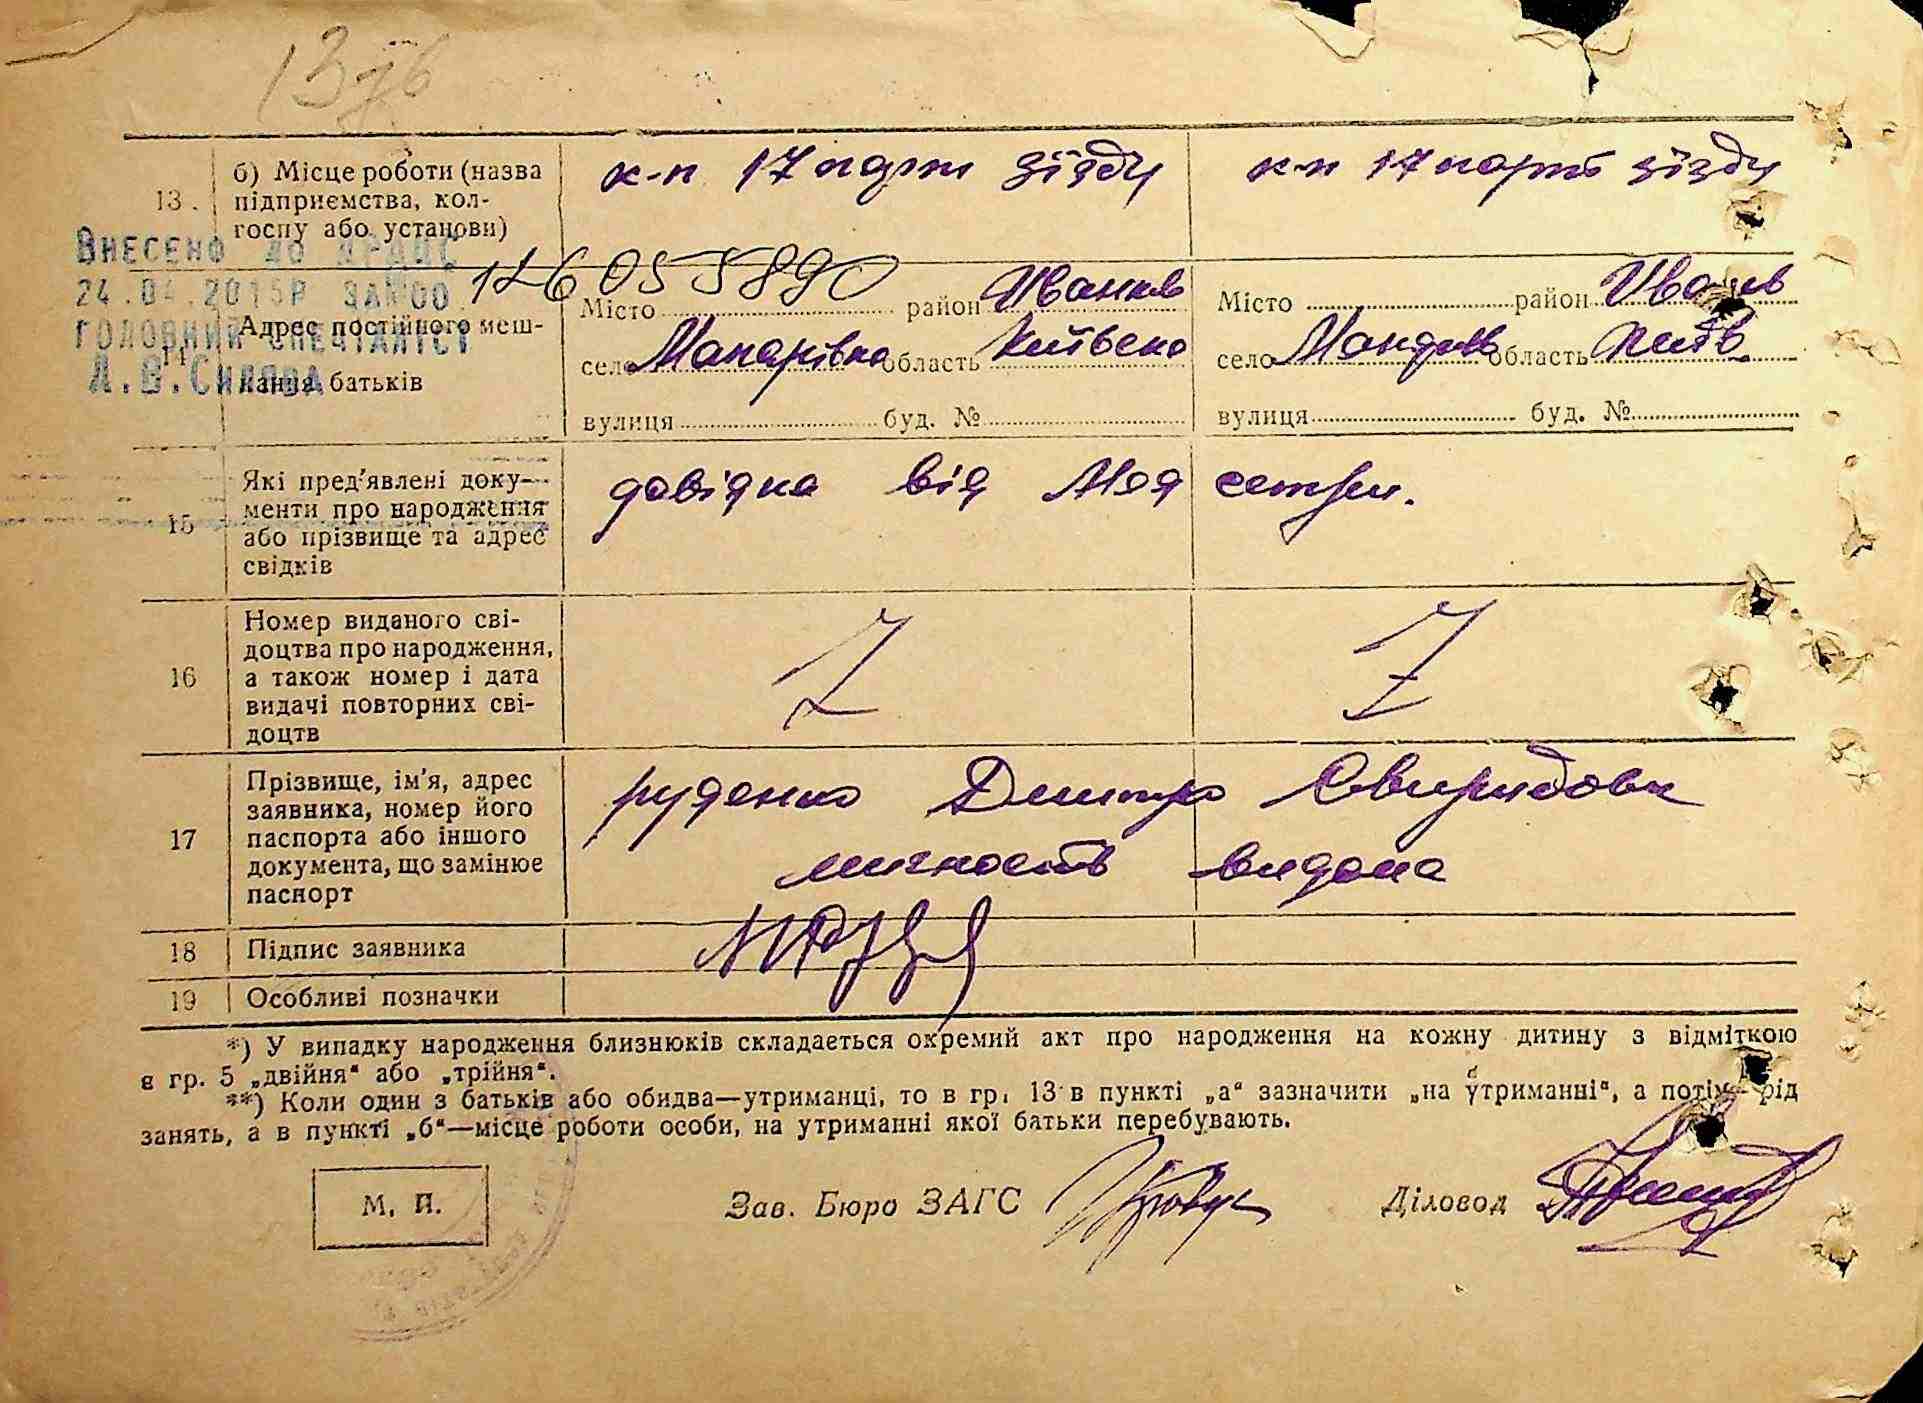 13
б) Місце роботи (назва
підприємства, кол-
госпу або установи)
к-п 17 парт зїзду
к-п 17 парт зїзду
ВНЕСЕНО ДО ДРАЦС
24.04.2015Р ЗАГ 00
ГОЛОВНИЙ СПЕЦІАЛІСТ
Л.В.
14
Адрес постійного меш-
кання батьків
Місто район Іванків
село Макарівка область Київська
вулиця буд. №
Місто район Іванків
село область Київ
вулиця буд. №
15
Які пред'явлені доку-
менти про народження
або прізвище та адрес
свідків
довідка від Мед сестри.
16
Номер виданого сві-
доцтва про народження,
а також номер і дата
видачі повторних сві-
доцтв
17
Прізвище, ім'я, адрес
заявника, номер його
паспорта або іншого
документа, що замінює
паспорт
руденко Дмитро Свиридович
личность видома
18
Підпис заявника
19
Особливі позначки
*) У випадку народження близнюків складається окремий акт про народження на кожну дитину з відміткою
в гр. 5 „двійня“ або „трійня“.
**) Коли один з батьків або обидва—утриманці, то в гр. 13 в пункті „а“ зазначити „на утриманні“, а потім—рід
занять, а в пункті „б“—місце роботи особи, на утриманні якої батьки перебувають.
М. П.
Зав. Бюро ЗАГС
Діловод